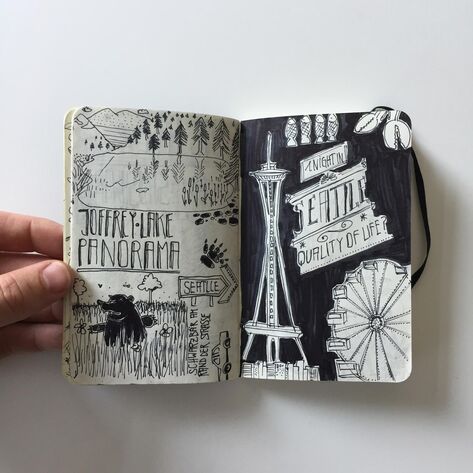 JOFFREY·LAKE
PANORAMA
SEATTLE
SCHWARZBÄR AM
RAND DER STRASSE
A NIGHT IN
SEATTLE
QUALITY OF LIFE